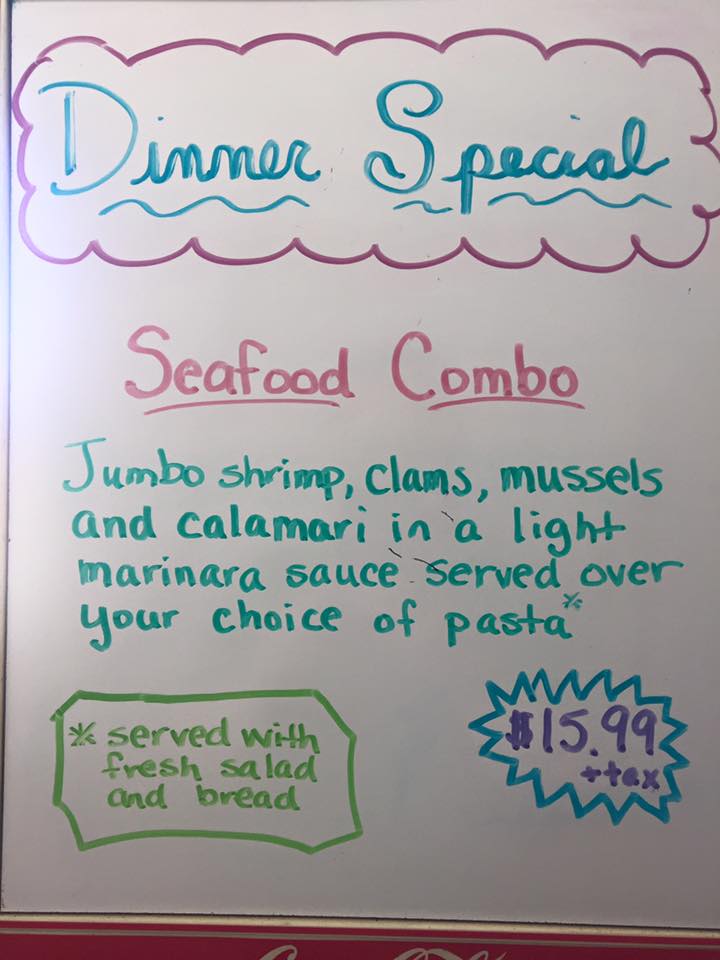 Dinner Special
Seafood Combo
Jumbo shrimp, clams, mussels
and calamari in a light
marinara sauce served over
your choice of pasta*
* served with
fresh salad
and bread
$15.99
+tax